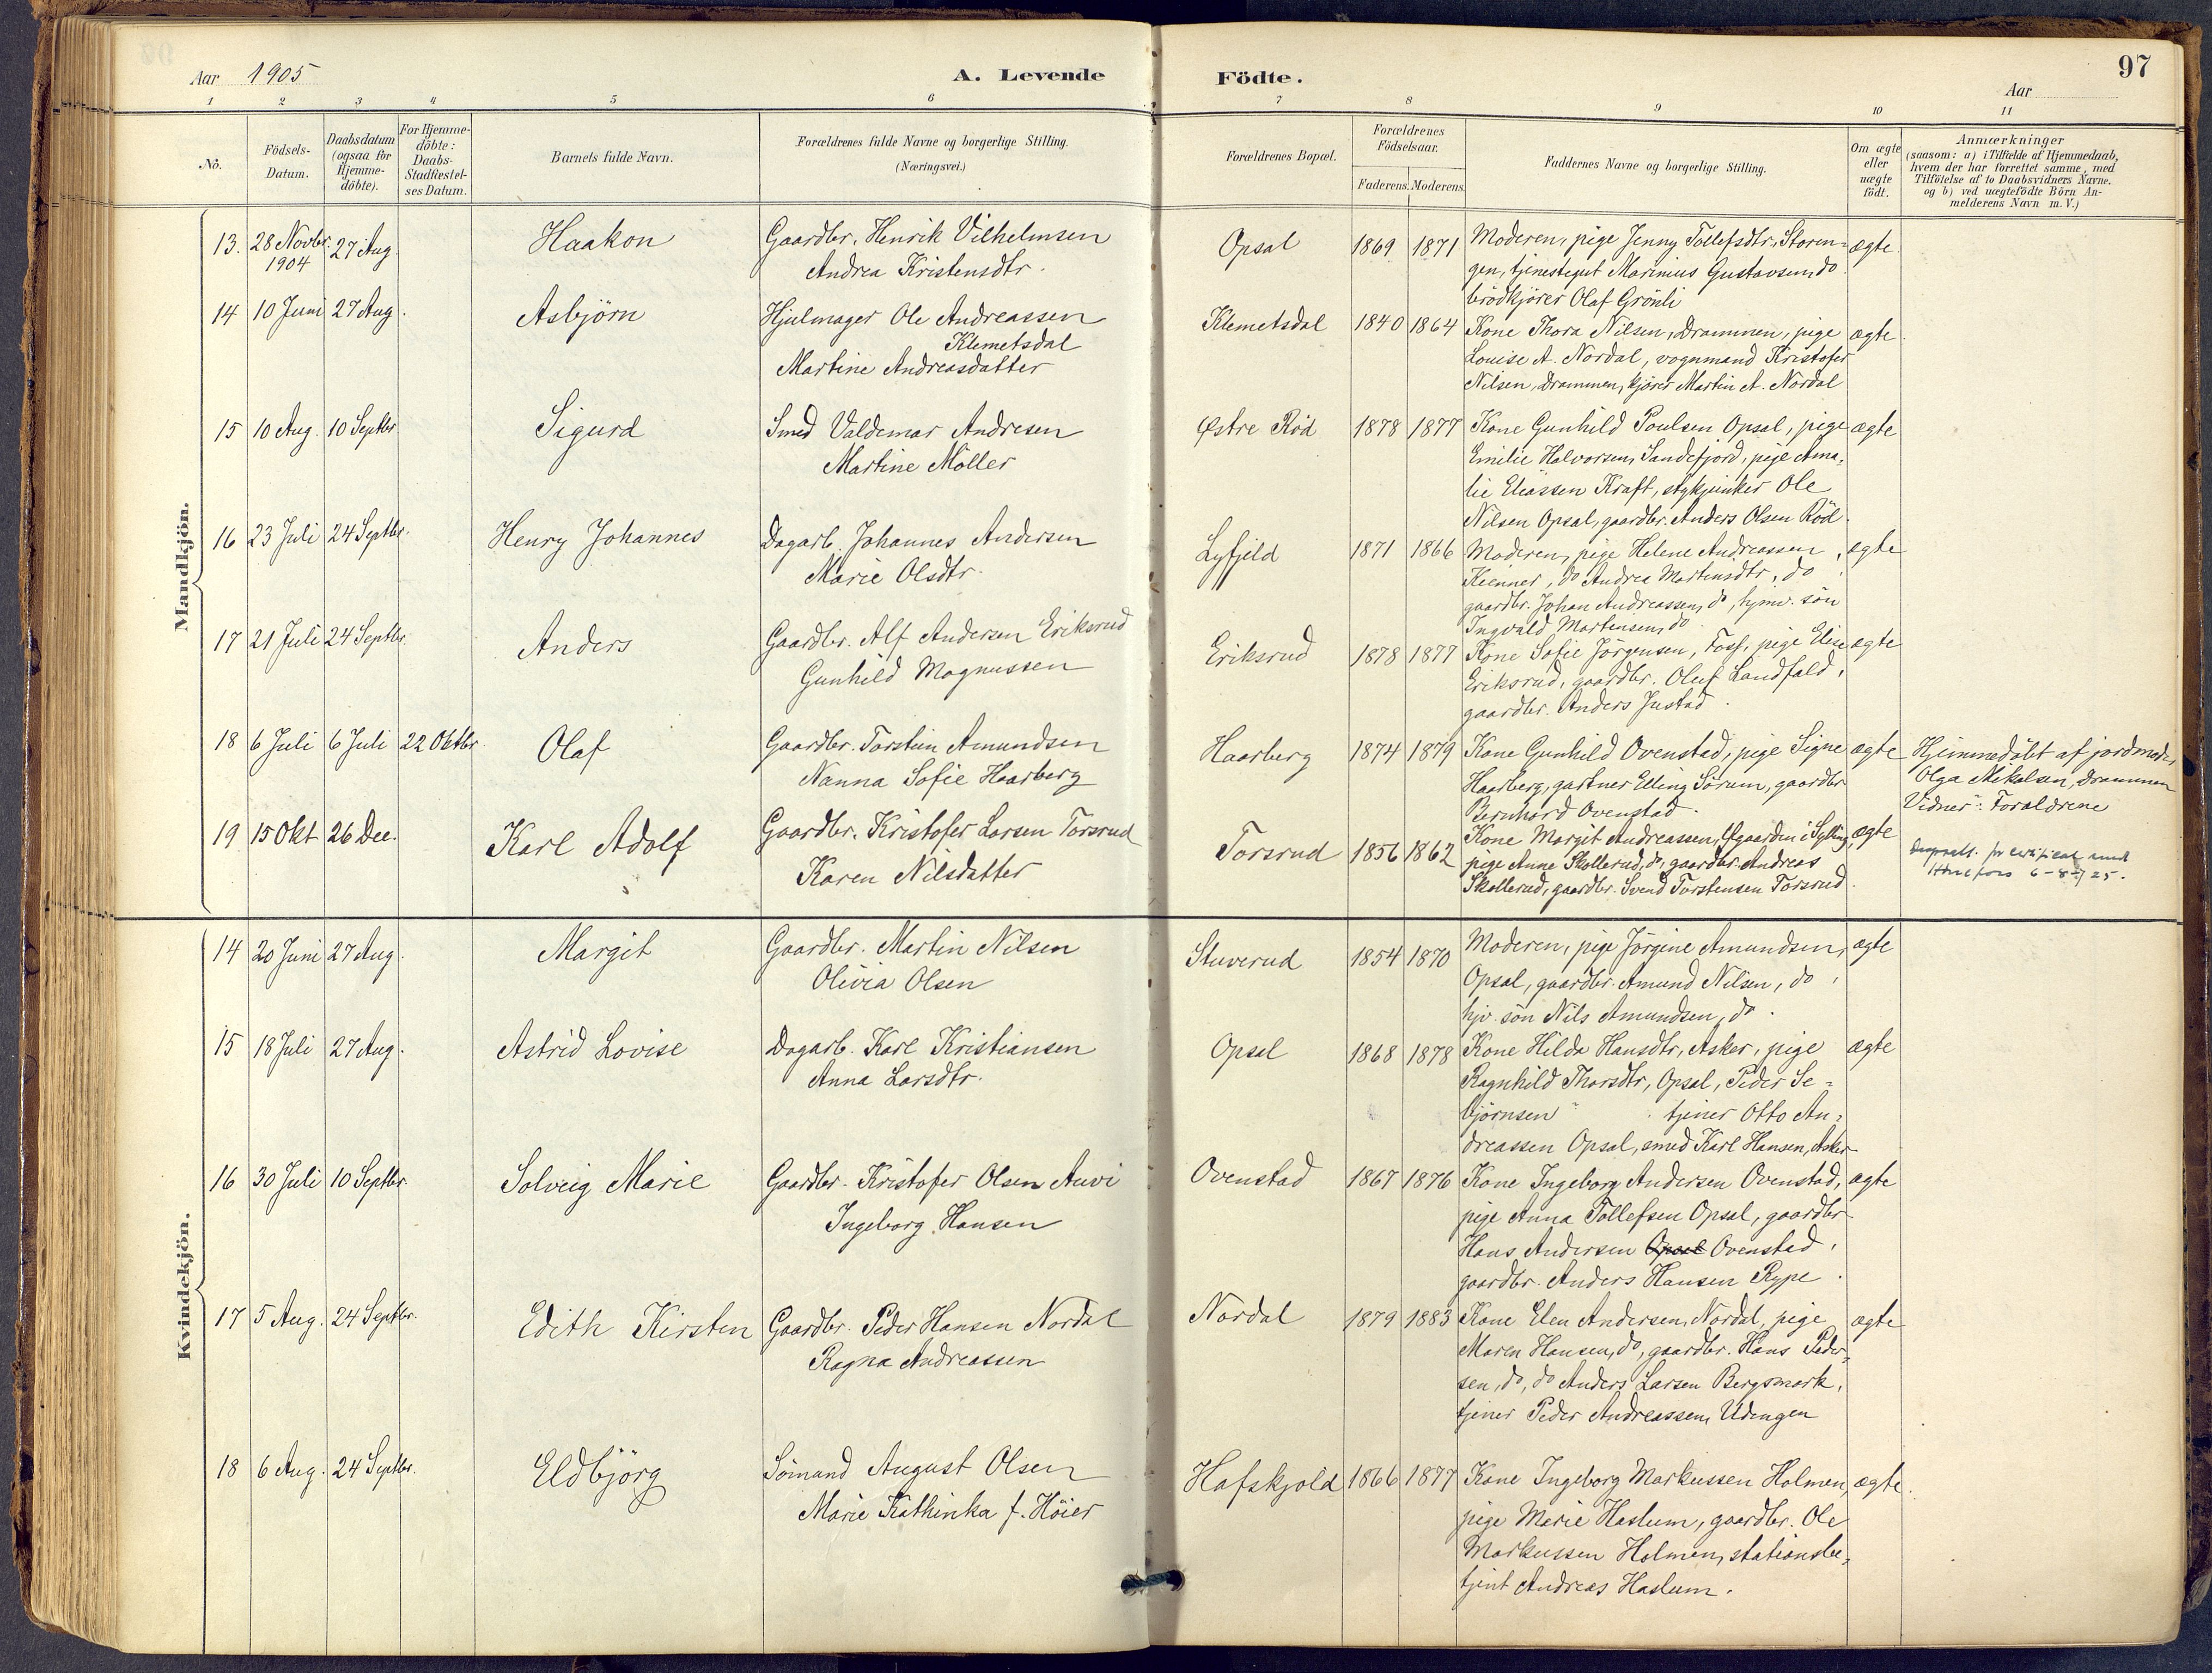 Aar 1905
A. Levende
Födte.
97
Aar
1 2 3 4 5 6 7 8 9 10 11
No.
Födsels-Datum.
Daabsdatum (ogsaa for Hjemme-döbte).
For Hjemme-döbte: Daabs-Stadfæstel-ses Datum.
Barnets fulde Navn.
Forældrenes fulde Navne og borgerlige Stilling.
(Næringsvei.)
Forældrenes Bopæl.
Forældrenes Födselsaar.
Faderens. Moderens.
Faddernes Navne og borgerlige Stilling.
Om ægte eller uægte födt.
Anmærkninger
(saasom: a) i Tilfælde af Hjemmedaab,
hvem der har forrettet samme, med
Tilföielse af to Daabsvidners Navne.
og b) ved uægtefödte Börn An-
melderens Navn m.V.)
Mandkjön.
13. 28 Novbr. 1904 27 Aug. Haakon
Gaardbr. Henrik Vilhelmsen
Andrea Kristensdtr.
Opsal 1869 1871
Moderen, pige Jenny Tollefsdtr, Storen=
gen, tjenestegut Marinius Gustavsen, do
brödkjörer Olaf Grönli
ægte.
14 10 Juni 27 Aug. Asbjörn
Hjulmager Ole Andreassen
Klemetsdal
Martine Andreasdatter
Klemetsdal 1840 1864
Kone Thora Nilsen, Drammen, pige
Louise A. Nordal, vognmand Kristofer
Nilsen, Drammen, kjörer Martin A. Nordal
ægte.
15 10 Aug. 10 Septbr Sigurd
Smed Valdemar Andresen
Martine Möller
Østre Röd 1878 1877
Kone Gunhild Poulsen Opsal, pige
Emilie Halvorsen, Sandefjord, pige Ama=
lie Eliassen Kraft, stykjunker Ole
Nilsen Opsal, gaardbr. Anders Olsen Röd.
ægte
16 23 Juli 24 Septbr. Henry Johannes
Dagarb. Johannes Andersen
Marie Olsdtr.
Lyfjeld 1871 1866
Moderen, pige Helene Andreassen,
do Andrea Martinsdtr, do
gaardbr. Johan Andreassen, do, hjmv. sön
Ingvald Martinsen, do.
ægte
17 21 Juli 24 Septbr. Anders
Gaardbr. Alf Andersen Eriksrud
Gunhild Magnussen
Eriksrud 1878 1877
Kone Sofie Jörgensen, Foss, pige Elise
Eriksrud, gaardbr. Oluf Landfald,
gaardbr. Anders Justad.
ægte
18 6 Juli 6 Juli 22 Oktbr. Olaf
Gaardbr. Torstein Amundsen
Nanna Sofie Haarberg
Haarberg 1874 1879
Kone Gunhild Ovenstad, pige Signe
Haarberg, gartner Elling Sörum, gaardbr
Bernhard Ovenstad.
ægte
Hjemmedöbt af jordmoder
Olga Mikalsen, Drammen
Vidner: Forældrene
19 15 Okt 26 Dec. Karl Adolf
Gaardbr. Kristofer Larsen Torsrud
Karen Nilsdatter
Torsrud 1856 1862
Kone Margit Andreassen, Øgaarden i Sylling,
pige Anne Skollerud, do, gaardbr. Andreas
Skollerud, gaardbr. Svend Torstensen Torsrud.
ægte
6-8-25.
Kvindekjön.
14 20 Juni 27 Aug. Margit
Gaardbr. Martin Nilsen
Olivia Olsen
Stuverud 1854 1870
Moderen, pige Jörgine Amundsen,
Opsal, gaardbr. Amund Nilsen, do,
hjv. sön Nils Amundsen, do.
ægte
15 18 Juli 27 Aug. Astrid Lovise
Dagarb. Karl Kristiansen
Anna Larsdtr.
Opsal 1868 1878
Kone Hilda Hansdtr, Asker, pige
Ragnhild Thorsdtr, Opsal, Peder Se=
björnsen tjener Otto An=
dreassen Opsal, smed Karl Hansen, Asker
ægte
16 30 Juli 10 Septbr. Solveig Marie
Gaardbr. Kristofer Olsen Auvi
Ingeborg Hansen
Ovenstad 1867 1876
Kone Ingeborg Andersen Ovenstad,
pige Anna Tollefsen Opsal, gaardbr
Hans Andersen Opsal Ovenstad,
gaardbr. Anders Hansen Rype.
ægte
17 5 Aug. 24 Septbr. Edith Kirsten
Gaardbr. Peder Hansen Nordal
Ragna Andreassen
Nordal 1879 1883
Kone Elen Andersen, Nordal, pige
Maren Hansen, do, gaardbr. Hans Peder=
sen, do, do Anders Larsen Bergsmark,
tjener Peder Andreassen, Udengen
ægte
18 6 Aug. 24 Septbr. Eldbjörg
Sömand August Olsen
Marie Kathinka f. Höier
Hafskjold 1866 1877
Kone Ingeborg Markussen Holmen,
pige Marie Haslum, gaardbr. Ole
Markussen Holmen, stationsbe=
tjent Andreas Haslum.
ægte.